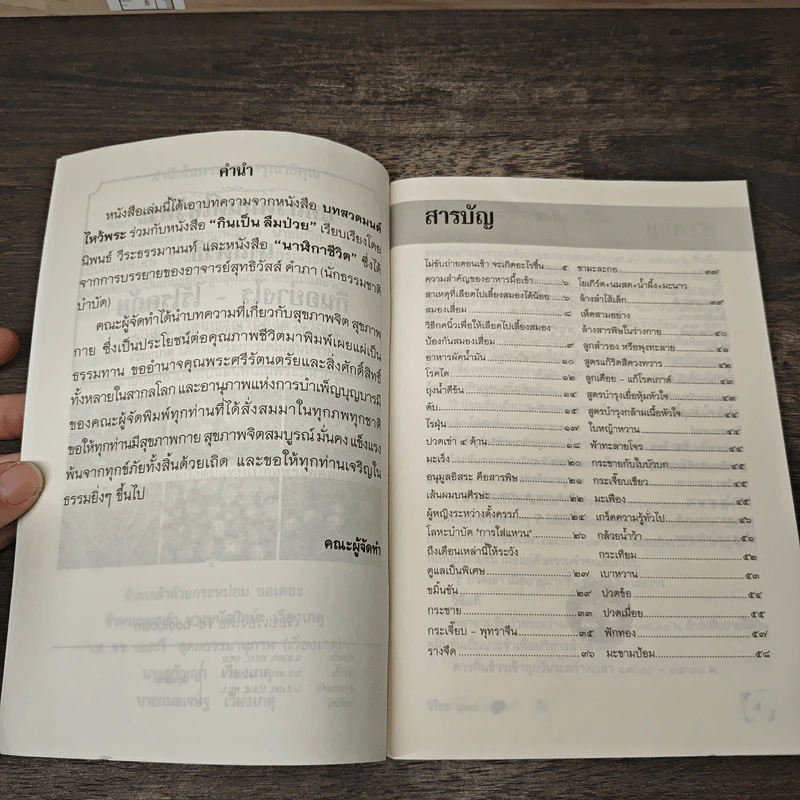 คำนำ
หนังสือเล่มนี้ได้เอาบทความจากหนังสือ บทสวดมนต์
ไหว้พระ ร่วมกับหนังสือ “กินเป็น ลืมป่วย” เรียบเรียงโดย
นิพนธ์ วีระธรรมานนท์ และหนังสือ “นาฬิกาชีวิต” ซึ่งได้
จากการบรรยายของอาจารย์สุทธิวัสส์ คำภา (นักธรรมชาติ
บำบัด)
คณะผู้จัดทำได้นำบทความที่เกี่ยวกับสุขภาพจิต สุขภาพ
กาย ซึ่งเป็นประโยชน์ต่อคุณภาพชีวิตมาพิมพ์เผยแผ่เป็น
ธรรมทาน ขออำนาจคุณพระศรีรัตนตรัยและสิ่งศักดิ์สิทธิ์
ทั้งหลายในสากลโลก และอานุภาพแห่งการบำเพ็ญบุญบารมี
ของคณะผู้จัดพิมพ์ทุกท่านที่ได้สั่งสมมาในทุกภพทุกชาติ
ขอให้ทุกท่านมีสุขภาพกาย สุขภาพจิตสมบูรณ์ มั่นคง แข็งแรง
พ้นจากทุกข์ภัยทั้งสิ้นด้วยเถิด และขอให้ทุกท่านเจริญใน
ธรรมยิ่งๆ ขึ้นไป
คณะผู้จัดทำ
สารบัญ
ไม่ขับถ่ายตอนเช้า จะเกิดอะไรขึ้น.....๕
ความสำคัญของอาหารมื้อเช้า.....๖
สาเหตุที่เลือดไปเลี้ยงสมองได้น้อย.....๖
สมองเสื่อม.....๘
วิธีกดนิ้วเพื่อให้เลือดไปเลี้ยงสมอง
ป้องกันสมองเสื่อม.....๙
อาหารผัดน้ำมัน.....๑๐
โรคไต.....๑๒
ถุงน้ำดีข้น.....๑๔
ตับ.....๑๕
ไรฝุ่น.....๑๗
ปวดเข่า ๔ ด้าน.....๑๘
มะเร็ง.....๒๐
อนุมูลอิสระ คือสารพิษ.....๒๑
เส้นผมบนศีรษะ.....๒๒
ผู้หญิงระหว่างตั้งครรภ์.....๒๔
โลหะบำบัด "การใส่แหวน".....๒๖
ถึงเดือนเหล่านี้ให้ระวัง
ดูแลเป็นพิเศษ.....๒๗
ขมิ้นชัน.....๒๙
กระชาย.....๓๓
กระเจี๊ยบ - พุทราจีน.....๓๕
รางจืด.....๓๖
ชามะละกอ.....๓๗
โยเกิร์ต+นมสด+น้ำผึ้ง+มะนาว
ล้างลำไส้เล็ก.....๓๙
เห็ดสามอย่าง
ล้างสารพิษในร่างกาย.....๔๐
ลูกสำรอง หรือพุงทะลาย.....๔๑
สูตรแก้ริดสีดวงทวาร.....๔๒
ลูกเดือย - แก้โรคเกาต์.....๔๓
สูตรบำรุงเยื่อหุ้มหัวใจ.....๔๓
สูตรบำรุงกล้ามเนื้อหัวใจ.....๔๔
ใบหญ้าหวาน.....๔๔
ฟ้าทะลายโจร.....๔๔
กระชายกับใบบัวบก.....๔๕
กระเจี๊ยบเขียว.....๔๕
มะเฟือง.....๔๕
เกร็ดความรู้ทั่วไป.....๔๖
กล้วยน้ำว้า.....๕๑
กระเทียม.....๕๒
เบาหวาน.....๕๓
ปวดข้อ.....๕๔
ปวดเมื่อย.....๕๕
ฟักทอง.....๕๗
มะขามป้อม.....๕๘